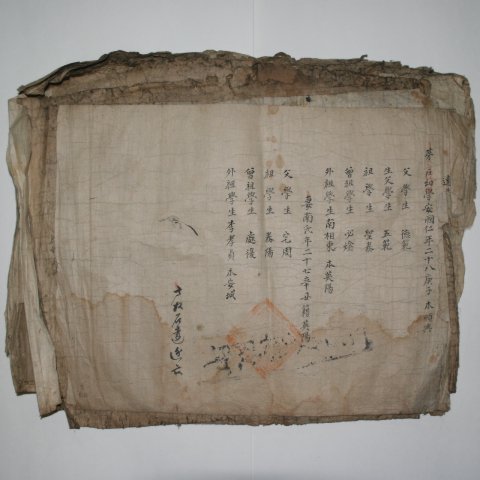 第 戶幼學安國仁年二十八庚子 本順興
父學生 德範
生父學生 五範
祖學生 聖泰
曾祖學生
外祖學生南相東 本英陽
妻南氏年二十七辛丑籍英陽
父學生 宅周
祖學生 壽陽
曾祖學生 處後
外祖學生李孝貞 本安城